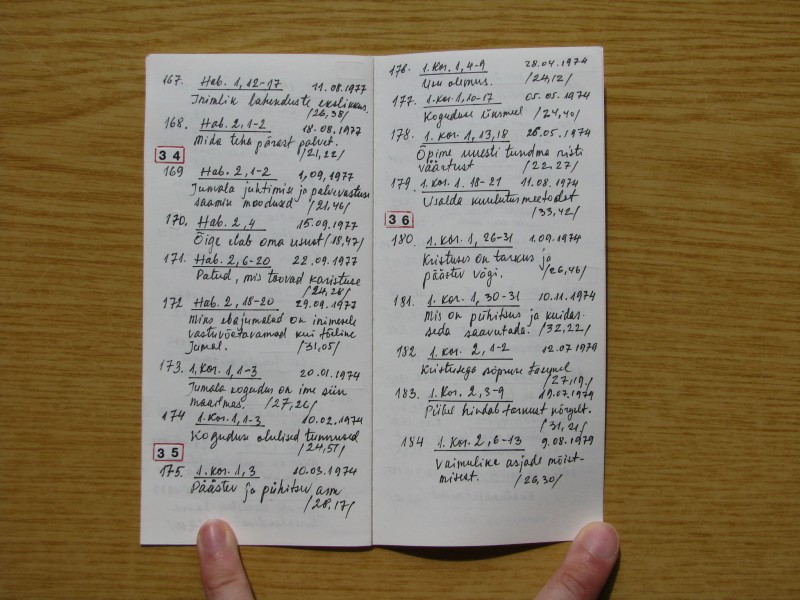 167. Hab. 1, 12-17 11.08.1977
Inimlik lahenduste ekslikkus.
/26,38/
168. Hab. 2, 1-2 18.08.1977
Mida teha pärast palvet.
/21,22/
34
169 Hab. 2, 1-2 1,09,1977
Jumala juhtimise ja palvevastuse
saamise moodused /21,46/
170. Hab. 2, 4 15.09.1977
Õige elab oma usust /18,47/
171. Hab. 2, 6-20 22.09.1977
Patud, mis toovad karistuse
/24,28/
172 Hab. 2, 18-20 29.09.1977
Miks ebajumalad on inimesele
vastuvõetavamad kui tõeline
Jumal. /31,05/
173. 1. Kor. 1, 1-3 20.01.1974
Jumala kogudus on ime siin
maailmas. /27,26/
174 1. Kor. 1, 1-3 10.02.1974
Koguduse olulised tunnused
/24,51/
35
175. 1. Kor. 1, 3 10.03.1974
Päästev ja pühitsev arm
/28,17/
176. 1. Kor. 1, 4-9 28.04.1974
Usu olemus. /24,12/
177. 1. Kor. 1, 10-17 05.05.1974
Koguduse üksmeel /24,40/
178. 1. Kor. 1, 13,18 26.05.1974
Õpime uuesti tundma risti
väärtust /22,27/
179. 1. Kor. 1. 18-21 11.08.1974
Usalda kuulutusmeetodit
/33,42/
36
180. 1. Kor. 1, 26-31 1.09.1974
Kristuses on tarkus ja
päästev vägi. /26,46/
181. 1. Kor. 1, 30-31 10.11.1974
Mis on pühitsus ja kuidas
seda saavutada. /32,22/
182 1. Kor. 2, 1-2 12.07.1979
Kristusega sõpruse
/27,19/
183. 1. Kor. 2, 3-9 19.07.1979
Piibel hindab tarkust kõrgelt.
/31,21/
184 1. Kor. 2, 6-13 9.08.1979
Vaimulike asjade mõist-
misest. /26,30/